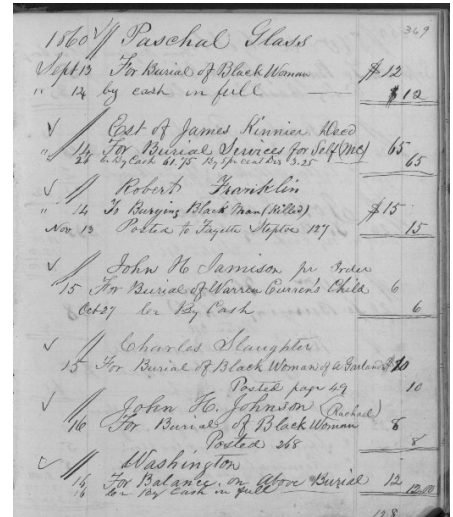 369
1860 √ // Paschal Glass
Sept 13 For Burial of Black Woman $12
" 14 by cash in full $12
√ // Est of James Kinnier Decd
" 14 For Burial Services for Self (MC) 65
26 Cr By Cash 61.75 By Special Dis 3.25 65
√ // Robert Franklin
" 14 To Burying Black Man (Killed) $15
Nov 13 Posted to Fayette Steptoe 127 15
√ // John H Jamison pr Order
15 For Burial of Warren Curren's Child 6
Oct 27 Cr By Cash 6
√ // Charles Slaughter
15 For Burial of Black Woman of A Garlands 10
Posted page 49 10
√ // John H. Johnson (Rachael)
16 For Burial of Black Woman 8
Posted 268 8
√ // Washington
16 For Balance on Above Burial 12
16 Cr By Cash in full 12.00
128